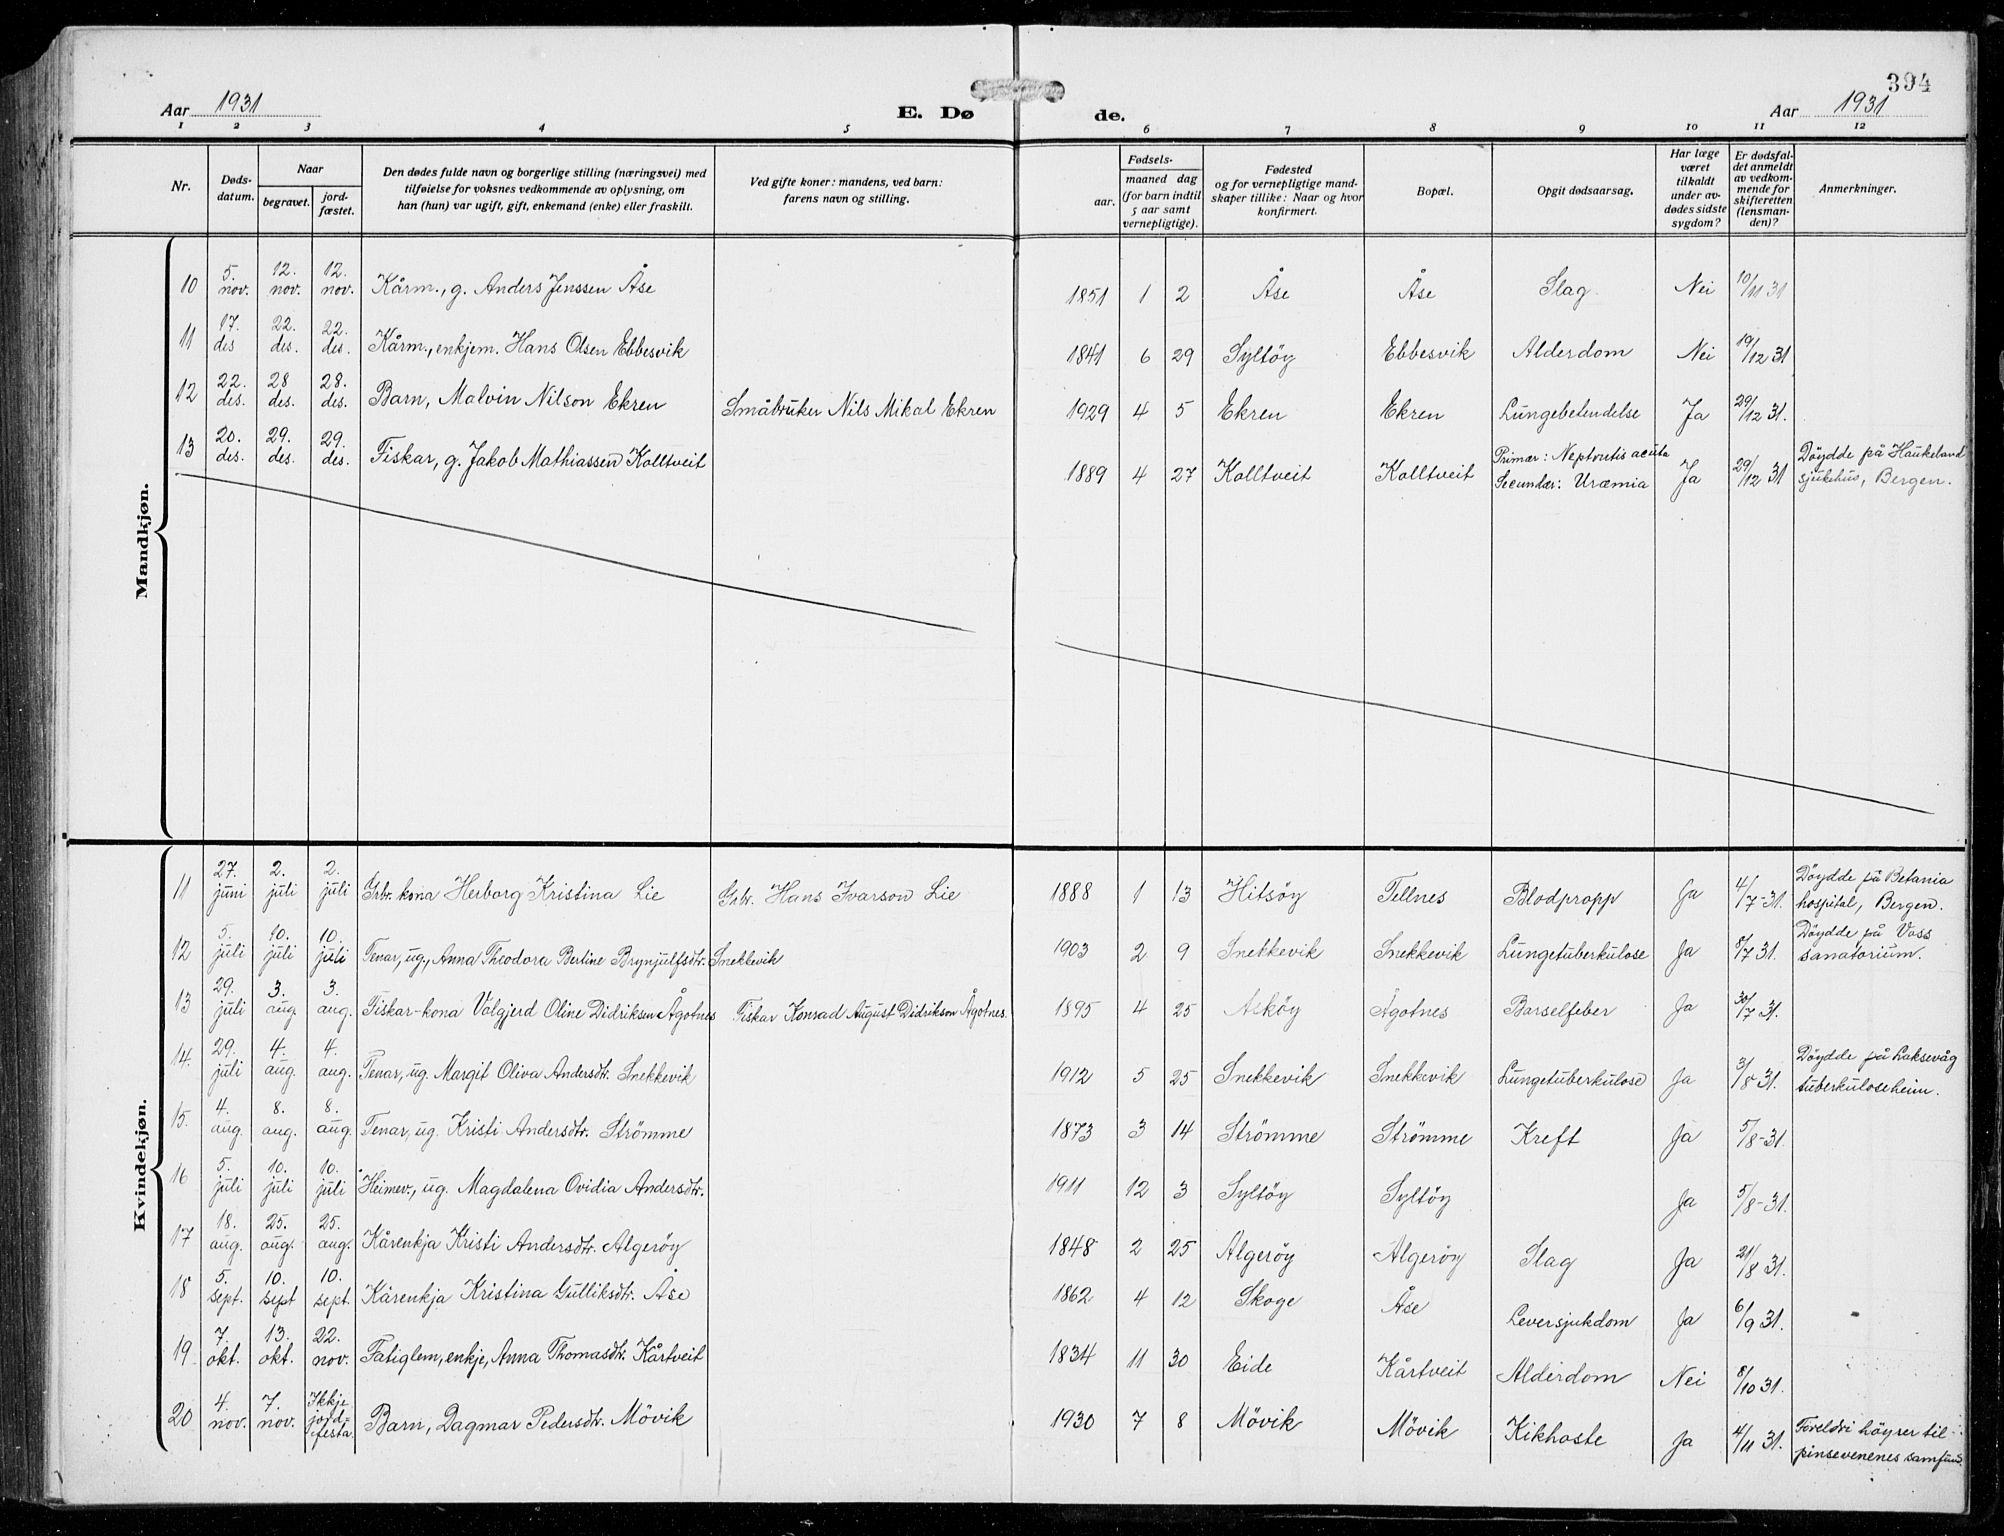 394
Aar 1931
E. Dø
de.
Aar 1931
1 2 3 4 5 6 7 8 9 10 11 12
Nr.
Døds-
datum.
Naar
begravet.
jord-
fæstet.
Den dødes fulde navn og borgerlige stilling (næringsvei) med
tilføielse for voksnes vedkommende av oplysning, om
han (hun) var ugift, gift, enkemand (enke) eller fraskilt.
Ved gifte koner: mandens, ved barn:
farens navn og stilling.
Fødsels-
aar.
maaned dag
(for barn indtil
5 aar samt
vernepligtige).
Fødested
og for vernepligtige mand-
skaper tillike: Naar og hvor
konfirmert.
Bopæl.
Opgit dødsaarsag.
Har læge
været
tilkaldt
under av-
dødes sidste
sygdom?
Er dødsfal-
det anmeldt
av vedkom-
mende for
skifteretten
(lensman-
den)?
Anmerkninger.
Mandkjøn.
10 5. nov. 12. nov. 12. nov. Kårm., g. Anders Jenssen Åse 1851 1 2 Åse Åse Slag. Nei 10/11 31
11 17. des 22. des. 22. des. Kårm., enkjem. Hans Olsen Ebbesvik 1841 6 29 Syltöy Ebbesvik Alderdom Nei 19/12 31
12 22. des. 28 des. 28. des. Barn, Malvin Nilson Ekren Småbruker Nils Mikal Ekren 1929 4 5 Ekren Ekren Lungebetendelse Ja 29/12 31.
13 20. des. 29. des. 29. des. Fiskar, g. Jakob Mathiassen Kolltveit 1889 4 27 Kolltveit Kolltveit Primær: Neptrutis acuta Secundær: Uræmia Ja 29/12 31 Döydde på Haukeland sjukehus, Bergen.
Kvindekjøn.
11 27. juni 2. juli 2. juli Grbr. kona Herborg Kristina Lie Grbr. Hans Ivarson Lie 1888 1 13 Hitsöy Tellnes Blodpropp Ja 4/7-31. Döydde på Betania hospital, Bergen.
12 5. juli 10. juli 10. juli Tenar, ug., Anna Theodora Berline Brynjulfsdtr. Snekkevik 1903 2 9 Snekkevik Snekkevik Lungetuberkulose Ja 8/7 31. Döydde på Voss sanatorium.
13 29. juli 3. aug. 3. aug. Fiskar-kona Valgjerd Oline Didriksen Ågotnes Fiskar Konrad August Didrikson Ågotnes. 1895 4 25 Asköy Ågotnes Barselfeber Ja 30/7 31.
14. 29. juli 4. aug. 4. aug. Tenar, ug. Margit Oliva Andersdtr. Snekkevik 1912 5 25 Snekkevik Snekkevik Lungetuberkulose Ja 3/8 31. Döydde på Laksevåg tuberkuloseheim.
15. 4. aug. 8. aug. 8. aug. Tenar, ug. Kristi Andersdtr. Strömme 1873 3 14 Strömme Strömme Kreft Ja 5/8-31.
16 5. juli 10. juli 10. juli Heimev., ug. Magdalena Ovidia Andersdtr. 1911 12 3 Syltöy Syltöy Ja 5/8-31.
17 18. aug. 25. aug. 25. aug. Kårenkja Kristi Andersdtr. Algeröy 1848 2 25 Algeröy Algeröy Slag Ja 21/8 31.
18 5. sept. 10. sept 10. sept. Kårenkja Kristina Gulliksdtr. Åse 1862 4 12 Skoge Åse Leversjukdom Ja 6/9 31.
19 7. okt. 13. okt. 22. nov. Fatiglem, enkje, Anna Thomasdtr. Kårtveit 1834 11 30 Eide Kårtveit Alderdom Nei 8/10 31.
20 4. nov. 7. nov. Ikkje jord- festa. Barn, Dagmar Pedersdtr. Mövik 1930 7 8 Mövik Mövik Kikhoste Ja 4/11 31. Foreldri höyrer til pinsevenenes samfund.